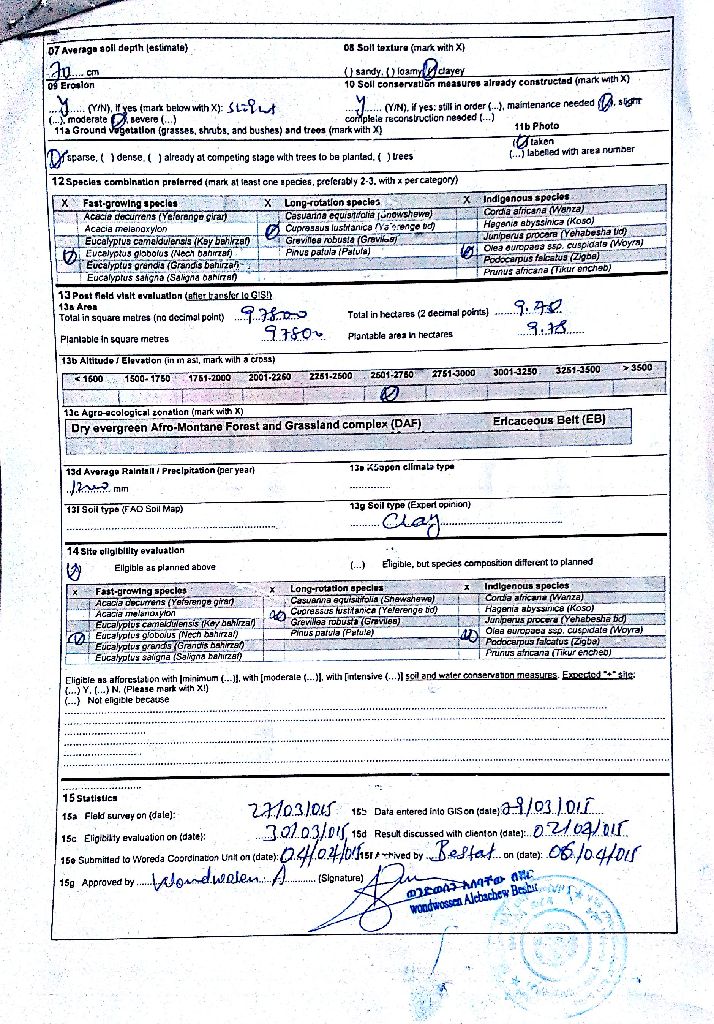 07 Average soil depth (estimate) 08 Soil texture (mark with X)
70 .... cm ( ) sandy, ( ) loamy ( ) clayey
09 Erosion 10 Soil conservation measures already constructed (mark with X)
Y (Y/N), if yes (mark below with X): slight Y (Y/N), if yes: still in order (...), maintenance needed ( ), slight
(...), moderate ( ), severe (...) complete reconstruction needed (...)
11a Ground vegetation (grasses, shrubs, and bushes) and trees (mark with X) 11b Photo
( ) taken
( ) sparse, ( ) dense, ( ) already at competing stage with trees to be planted, ( ) trees (...) labelled with area number
12 Species combination preferred (mark at least one species, preferably 2-3, with x per category)
X Fast-growing species X Long-rotation species X Indigenous species
Acacia decurrens (Yeferenge girar) Casuarina equisitifolia (Shewshewe) Cordia africana (Wanza)
Acacia melanoxylon Cupressus lusitanica (Yeferenge tid) Hagenia abyssinica (Koso)
Eucalyptus camaldulensis (Key bahirzaf) Grevillea robusta (Grevilea) Juniperus procera (Yehabesha tid)
Eucalyptus globolus (Nech bahirzaf) Pinus patula (Patula) Olea europaea ssp. cuspidata (Woyra)
Eucalyptus grandis (Grandis bahirzaf) Podocarpus falcatus (Zigba)
Eucalyptus saligna (Saligna bahirzaf) Prunus africana (Tikur encheb)
13 Post field visit evaluation (after transfer to GIS!)
13a Area
Total in square metres (no decimal point) ...97800 Total in hectares (2 decimal points) 9.78
Plantable in square metres 97800 Plantable area in hectares 9.78
13b Altitude / Elevation (in m asl, mark with a cross)
< 1500 1500-1750 1751-2000 2001-2250 2251-2500 2501-2750 2751-3000 3001-3250 3251-3500 > 3500
13c Agro-ecological zonation (mark with X)
Dry evergreen Afro-Montane Forest and Grassland complex (DAF) Ericaceous Belt (EB)
13d Average Rainfall / Precipitation (per year) 13e Köppen climate type
mm
13f Soil type (FAO Soil Map) 13g Soil type (Expert opinion)
Clay
14 Site eligibility evaluation
Eligible as planned above (...) Eligible, but species composition different to planned
x Fast-growing species x Long-rotation species x Indigenous species
Acacia decurrens (Yeferenge girar) Casuarina equisitifolia (Shewshewe) Cordia africana (Wanza)
Acacia melanoxylon Cupressus lusitanica (Yeferenge tid) Hagenia abyssinica (Koso)
Eucalyptus camaldulensis (Key bahirzaf) Grevillea robusta (Grevilea) Juniperus procera (Yehabesha tid)
Eucalyptus globolus (Nech bahirzaf) Pinus patula (Patula) Olea europaea ssp. cuspidata (Woyra)
Eucalyptus grandis (Grandis bahirzaf) Podocarpus falcatus (Zigba)
Eucalyptus saligna (Saligna bahirzaf) Prunus africana (Tikur encheb)
Eligible as afforestation with [minimum (...)], with [moderate (...)], with [intensive (...)] soil and water conservation measures. Expected "+" site:
(...) Y, (...) N. (Please mark with X!)
(...) Not eligible because
15 Statistics
15a Field survey on (date): 27/03/015 15b Data entered into GIS on (date) 29/03/015
15c Eligibility evaluation on (date): 30/03/015 15d Result discussed with client on (date): 02/04/015
15e Submitted to Woreda Coordination Unit on (date): 04/04/015 15f Archived by Besfat on (date): 06/04/015
15g Approved by Wondwosen A (Signature)
wondwossen Alebachew Beshir